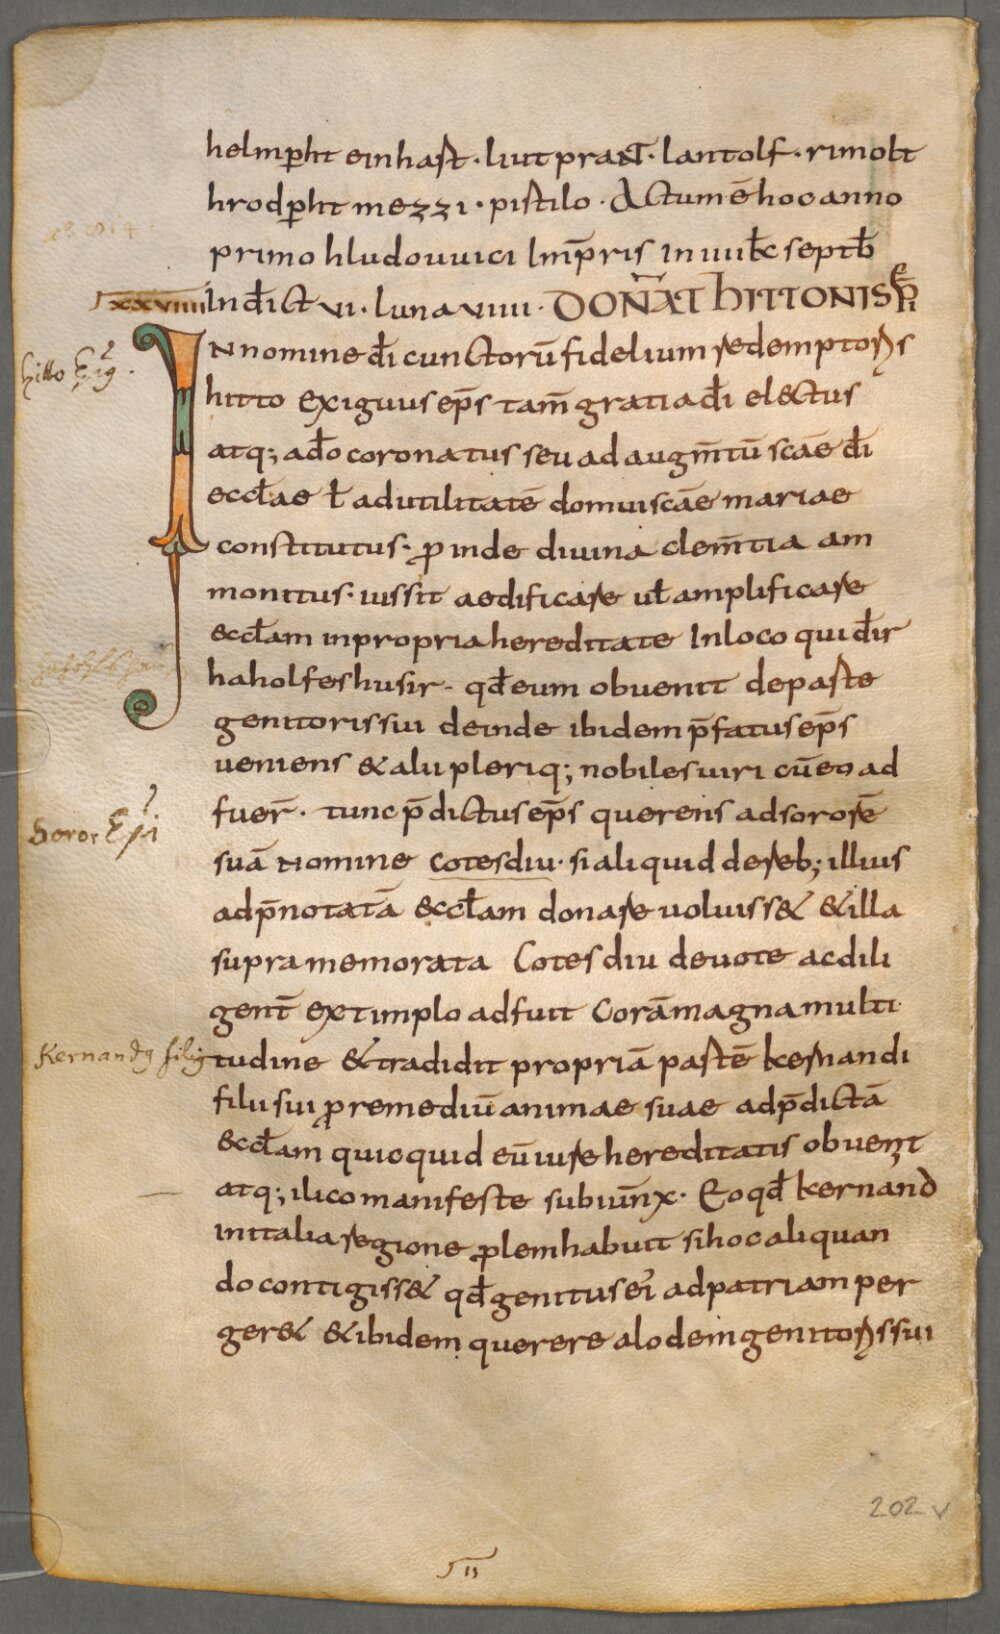 helmp̲ht einhast · liutprant · lantolf · rimolt
hrodp̲ht mezzi · pistilo · Actum ē hoc anno
primo hludouuici Imp̄ris in iiii kƚ septb̄
xxviiii Ind̄ict vi · luna viiii · DONAT̄ HITTONIS EP̄I
hitto Ep̄ig.
IN nomine d̄i cunctorū fidelium redemptoris
hitto exiguus ep̄s tam̄ gratia d̄i electus
atq; a d̄o coronatus seu ad augm̄tū sc̄ae d̄i
eccƚae ƚ ad utilitatē domui sc̄ae mariae
constitutus · ꝓinde diuina clem̄tia am
monitus · iussit aedificare uƚ amplificare
&ccƚam in propria hereditate In loco qui d̄ir
haholfeshusir - qd̄ eum obuenit de parte
genitoris sui deinde ibidem p̄fatus ep̄s
ueniens & alii pleriq; nobiles uiri cū eo ad
fuer̄ · tunc p̄dictus ep̄s querens ad sororē
Soror Ep̄i
suā nomine cotesdiu · si aliquid de reb; illius
ad p̄notatā &ccƚam donare uoluiss& & illa
supra memorata Cotesdiu deuote ac dili
gent̄ extimplo adfuit Corā magna multi
Kernandꝯ filiꝯ
tudine & tradidit propriā partē kernandi
filii sui ꝓ remediū animae suae ad p̄dictā
&ccƚam quicquid eū iure hereditatis obuenit
atq; ilico manifeste subiun̄x · Eo qd̄ kernand
in italia regione ꝓlem habuit si hoc aliquan
do contigiss& qd̄ genitus ei ad patriam per
ger& & ibidem querere alodem genitoris sui
202 v